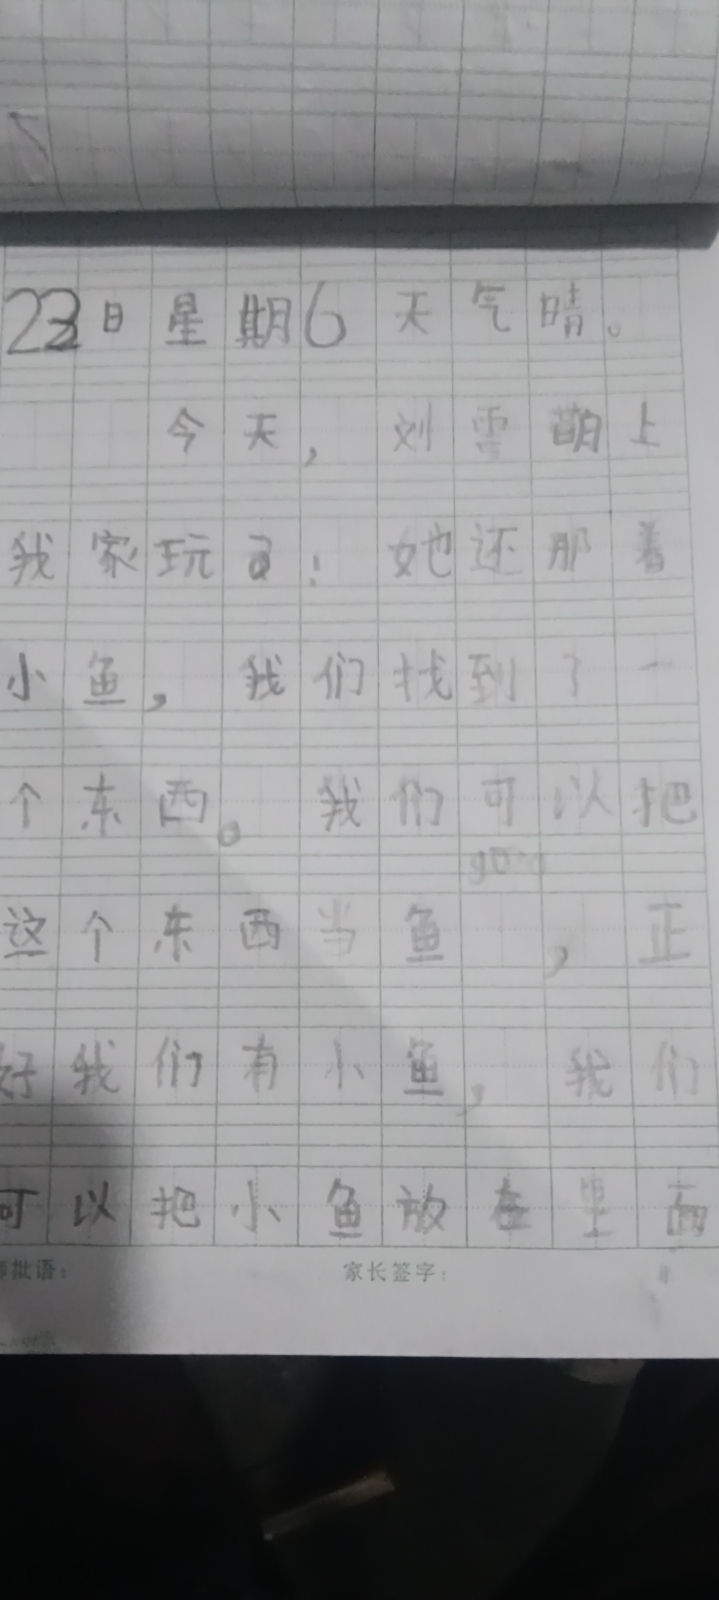 23日星期6天气晴。
今天，刘雪萌上
我家玩了！她还那着
小鱼，我们找到了一
个东西。我们可以把
gang
这个东西当鱼　，正
好我们有小鱼，我们
可以把小鱼放在里面
批语：　家长签字：